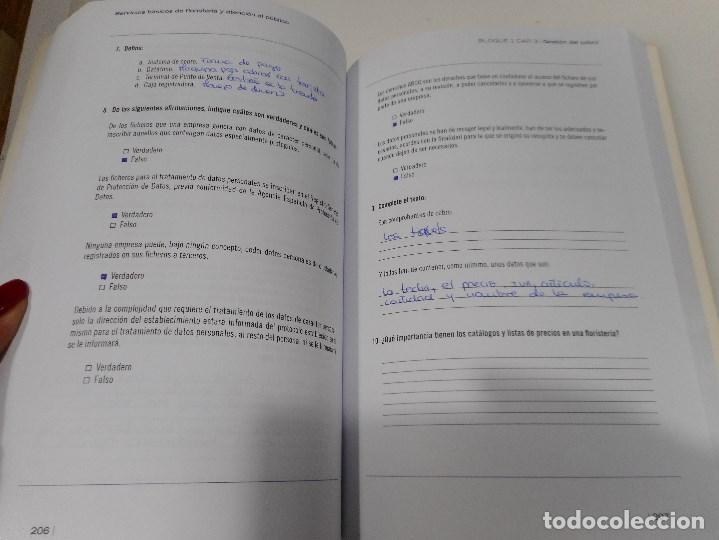 Servicios básicos de floristería y atención al público
7. Defina:
a. Sistema de cobro. Forma de pago
b. Datáfono.
c. Terminal de Punto de Venta.
d. Caja registradora. Manejo de dinero
8. De las siguientes afirmaciones, indique cuáles son verdaderas y cuáles son falsas.
De los ficheros que una empresa genera con datos de carácter personal
inscribir aquellos que contengan datos especialmente protegidos.
Verdadero
Falso
Los ficheros para el tratamiento de datos personales se inscriben en el Registro General
de Protección de Datos, previa conformidad de la Agencia Española de Protección de
Datos.
Verdadero
Falso
Ninguna empresa puede, bajo ningún concepto, ceder datos personales de
registrados en sus ficheros a terceros.
Verdadero
Falso
Debido a la complejidad que requiere el tratamiento de los datos de carácter personal
solo la dirección del establecimiento estará informada del protocolo establecido
mismo para el tratamiento de datos personales, al resto del personal ni se le
se le informará.
Verdadero
Falso
206
BLOQUE 1 CAP. 3 Gestión del cobro
Los derechos ARCO son los derechos que tiene un ciudadano al acceso del fichero de sus
datos personales, a su revisión, a poder cancelarlos o a oponerse a que se registren por
parte de una empresa.
Verdadero
Falso
Los datos personales se han de recoger legal y lealmente, han de ser los adecuados y ne-
cesarios, acordes con la finalidad para la que se originó su recogida y se deben cancelar
cuando dejan de ser necesarios.
Verdadero
Falso
9. Complete el texto:
Son comprobantes de cobro:
Los tickets
Y estos han de contener, como mínimo, unos datos que son:
la fecha, el precio, artículo,
cantidad y nombre de la empresa
10. ¿Qué importancia tienen los catálogos y listas de precios en una floristería?
todocoleccion.net